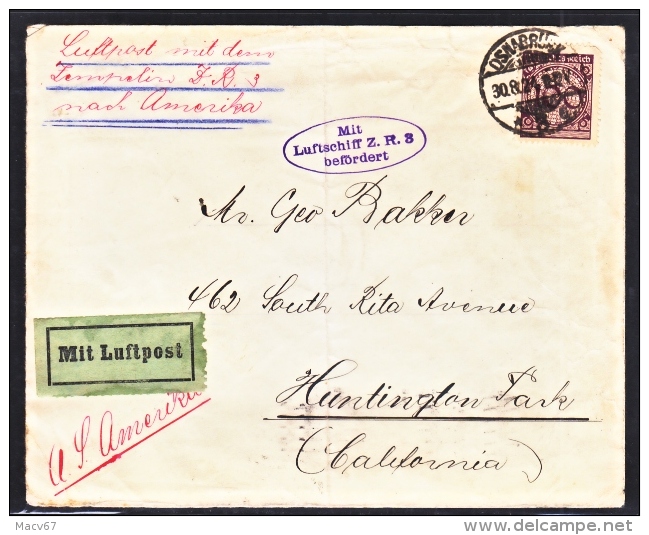 Luftpost mit dem
Tempelin Z. R. 3
nach Amerika
OSNABRÜCK
30.8.
Mit
Luftschiff Z. R. 3
befördert
Mr. Geo Bakker
462 South Rita Avenue
Huntington Park
(California)
Mit Luftpost
U. S. Amerika
Macv67
www.delcampe.net